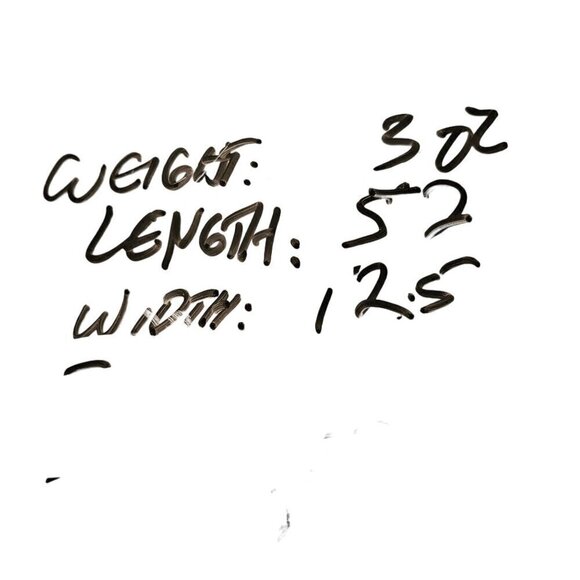 WEIGHT: 3 oz
LENGTH: 52
WIDTH: 12.5